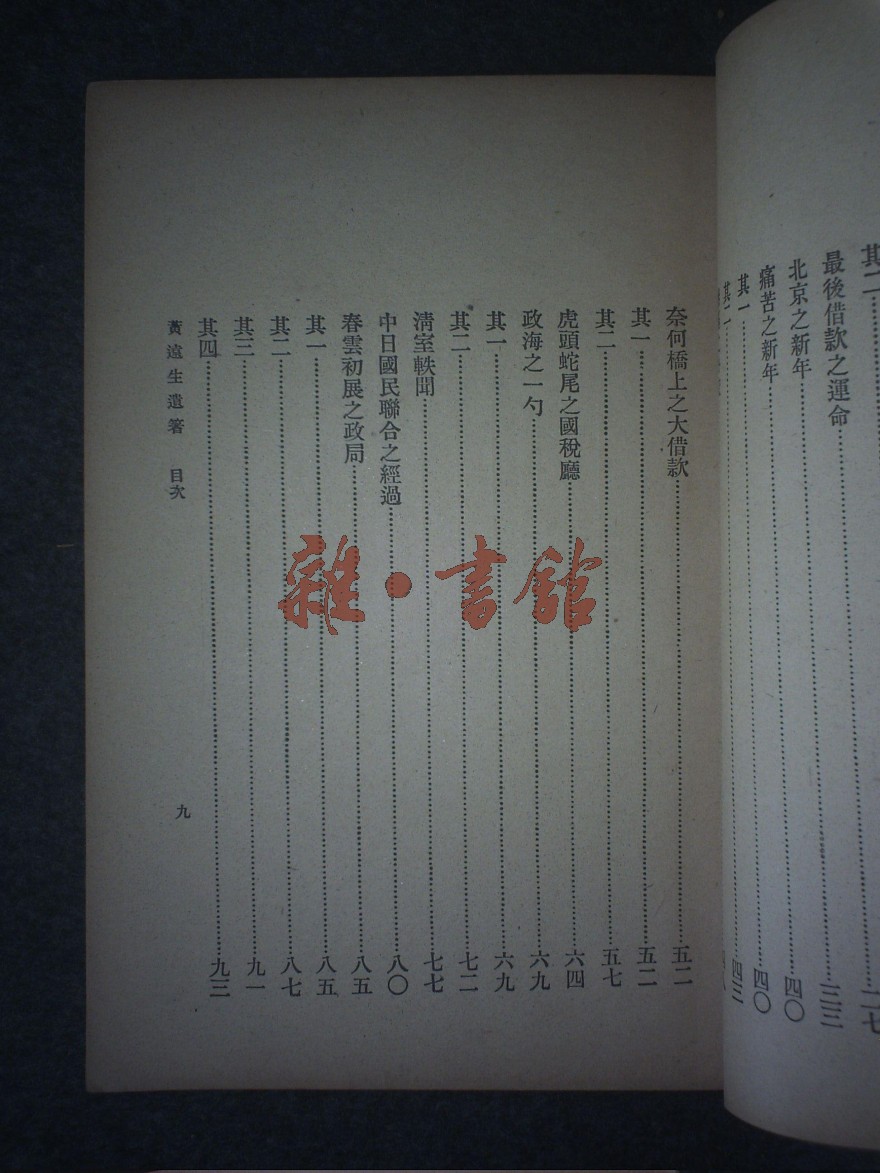 其二……二七
最後借款之運命……三三
北京之新年……四〇
痛苦之新年……四〇
其一……四三
其二
奈何橋上之大借款……五二
其一……五二
其二……五七
虎頭蛇尾之國稅廳……六四
政海之一勺……六九
其一……六九
其二……七二
清室軼聞……七七
中日國民聯合之經過……八〇
春雲初展之政局……八五
其一……八五
其二……八七
其三……九一
其四……九三
黃遠生遺著 目次 九
雜·書館